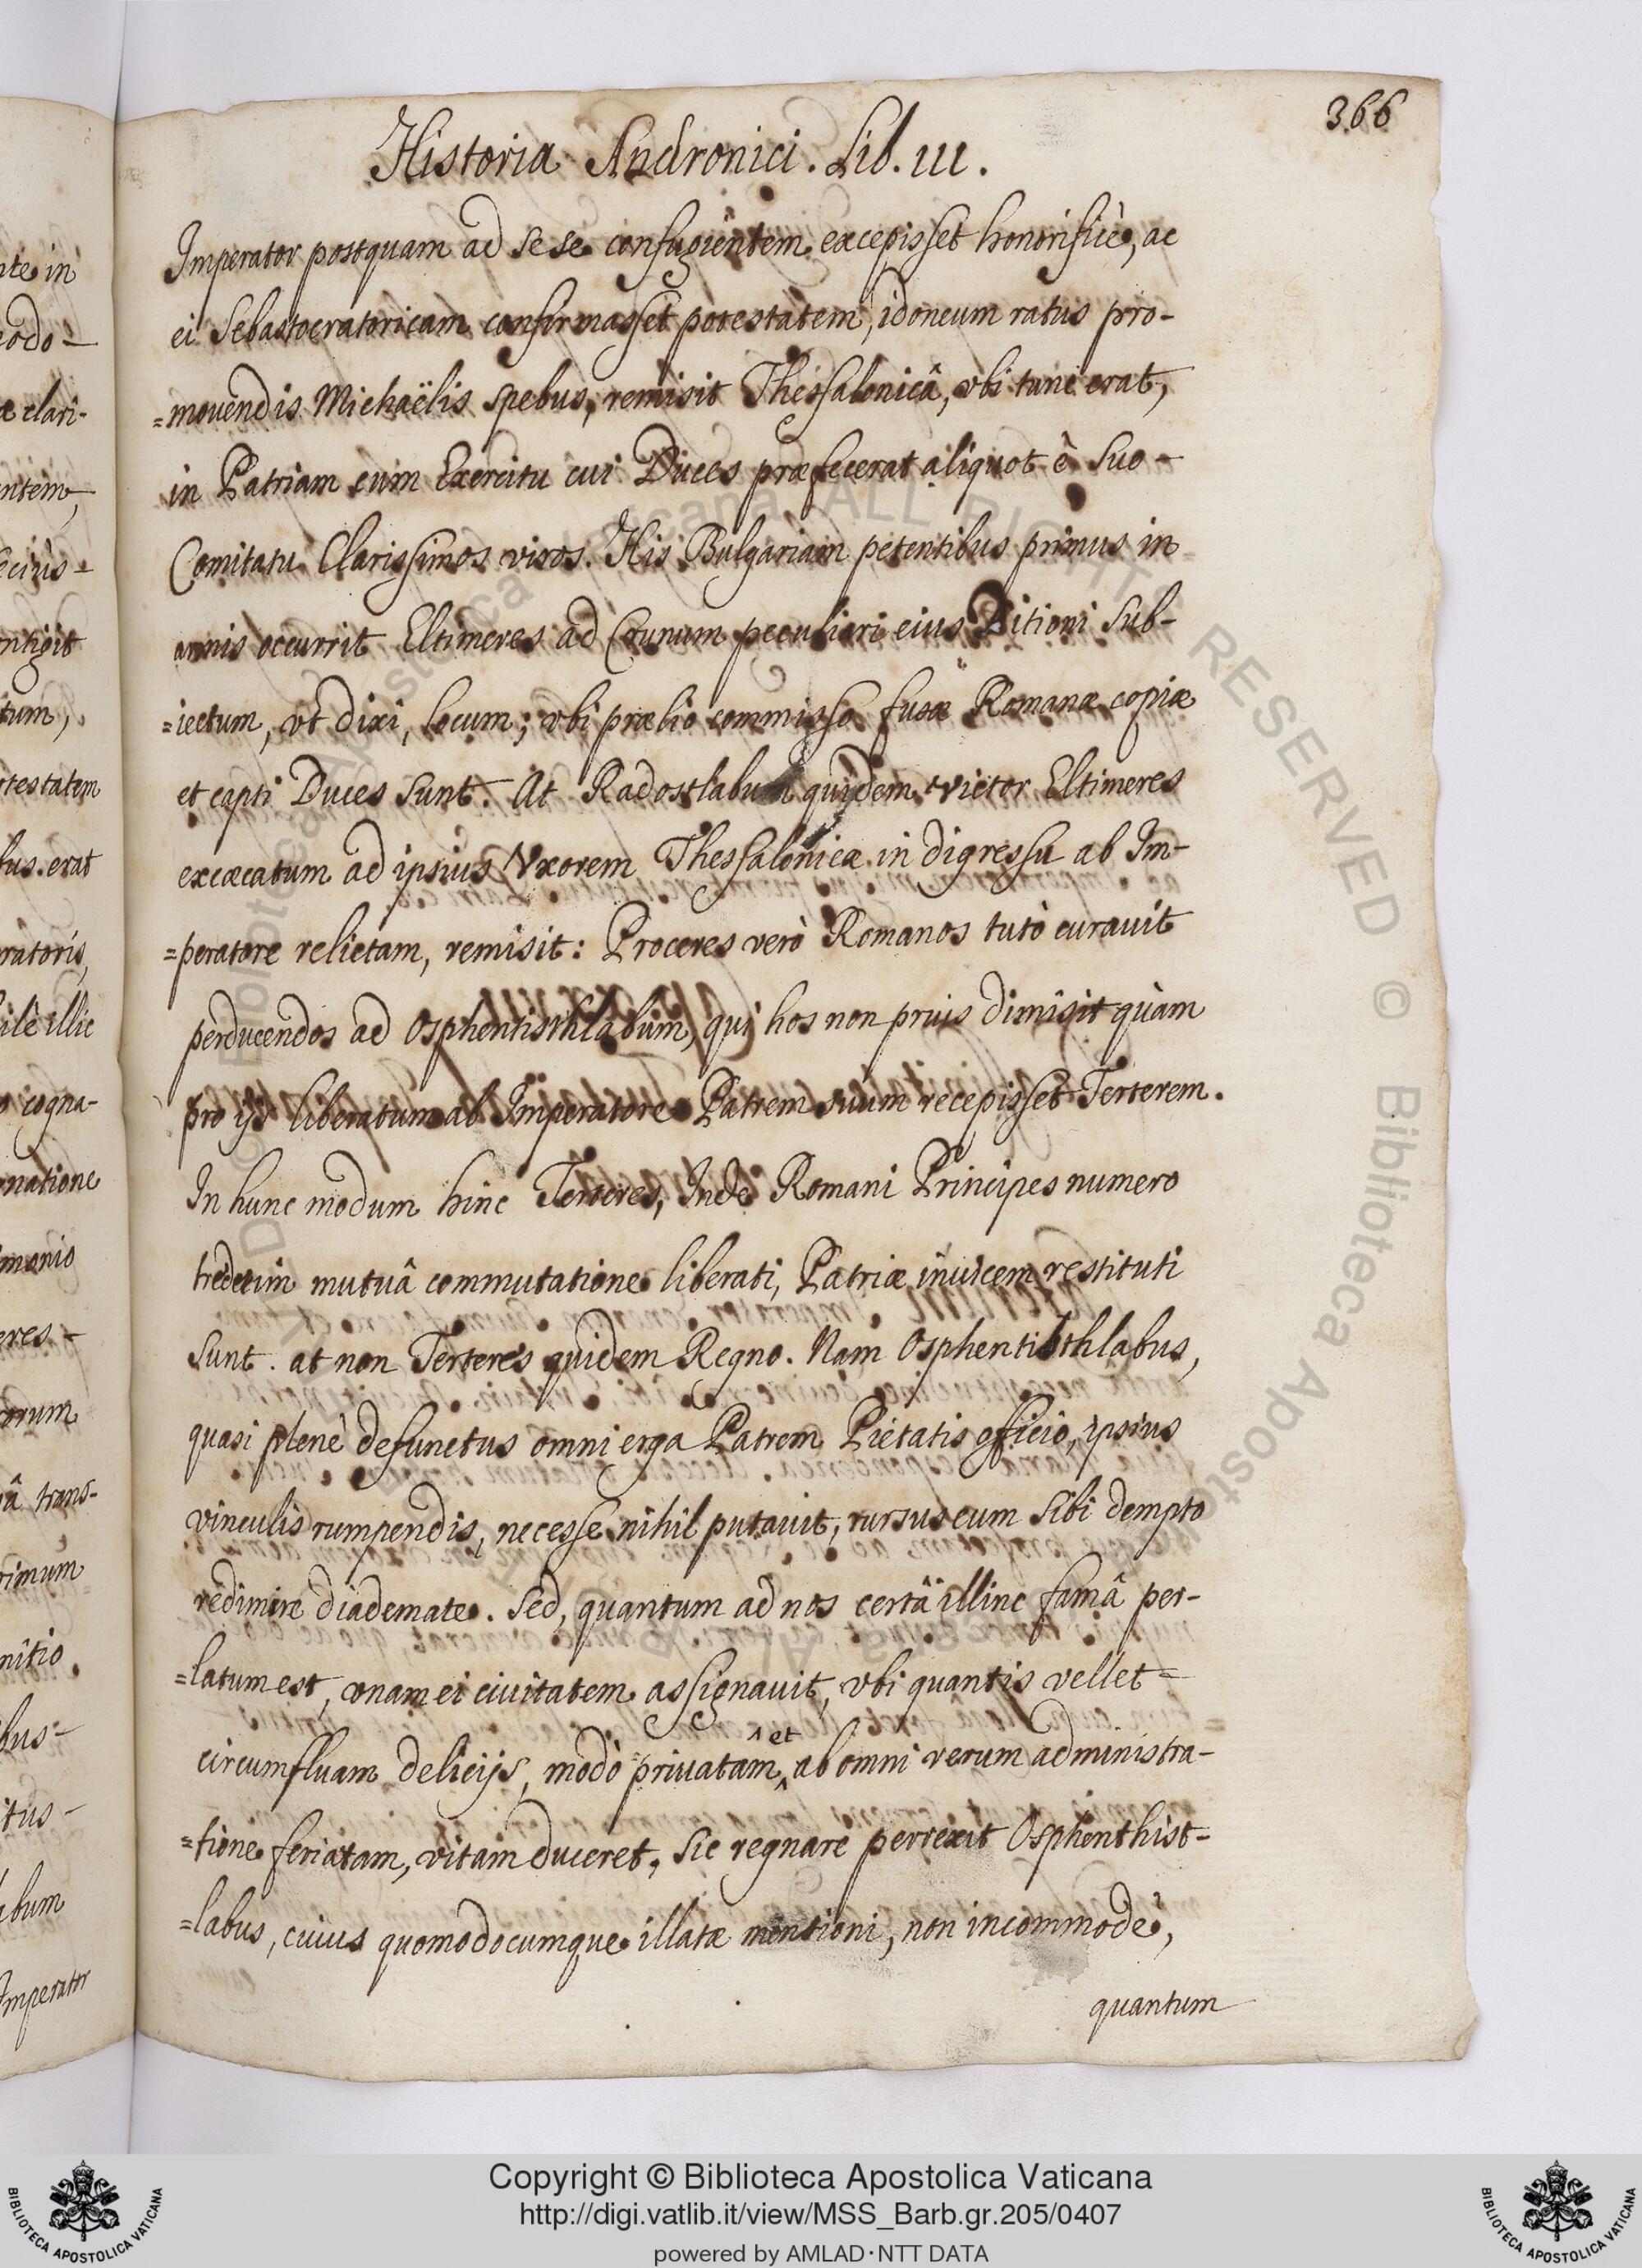 366
Historia Andronici. Lib. III.
Imperator postquam ad se se confugientem excepisset honorificè, ac
ei Sebastocratoricam confirmasset potestatem, idoneum ratus pro-
=mouendis Michaëlis spebus, remisit Thessalonicâ, vbi tunc erat,
in Patriam cum Exercitu cui Duces præfecerat aliquot è suo-
Comitatu Clarissimos viros. His Bulgariam petentibus primus in
armis occurrit Eltimeres ad Crunum peculiari eius Ditioni sub-
=iectum, vt dixi, locum; vbi prælio commisso fusæ Romanæ copiæ
et capti Duces sunt. At Radosthlabum quidem victor Eltimeres
excæcatum ad ipsius Vxorem Thessalonicæ in digressu ab Im-
=peratore relictam, remisit: Proceres verò Romanos tutò curauit
perducendos ad Osphentisthlabum, qui hos non prius dimisit quàm
pro ijs liberatum ab Imperatore Patrem suum recepisset Terterem.
In hunc modum hinc Terteres, Inde Romani Principes numero
tredecim mutuâ commutatione liberati, Patriæ inuicem restituti
sunt. at non Terteres quidem Regno. Nam Osphentisthlabus,
quasi plenè defunctus omni erga Patrem Pietatis officio, ipsius
vinculis rumpendis, necesse nihil putauit, rursus eum sibi dempto
redimire diademate. Sed, quantum ad nos certâ illinc famâ per-
=latum est, vnam ei ciuitatem assignauit, vbi quantis vellet=
circumfluam delicijs, modò priuatam ^et ab omni rerum administra-
=tione feriatam, vitam duceret, sic regnare perrexit Osphenthist-
=labus, cuius quomodocumque illatæ mentioni, non incommodè,
quantum
nte in
codo-
æ clari-
entem,
ecius-
ntigit
tum,
otestatem
bus erat
ratoris,
ilè illic
o cogna-
natione
monio
eres-
orum
â trans-
rimum
nitio
bus-
itus-
abum
Imperator
Copyright © Biblioteca Apostolica Vaticana
http://digi.vatlib.it/view/MSS_Barb.gr.205/0407
powered by AMLAD·NTT DATA
BIBLIOTECA APOSTOLICA VATICANA
BIBLIOTECA APOSTOLICA VATICANA